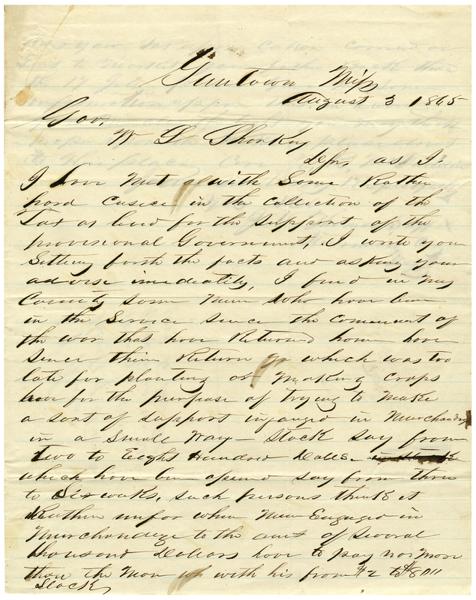 Guntown Miss
August 3 1865
Gov.
W L Sharkey
Dr Sir, as I
I have Met with Some Rather
hard Cases in the Collection of the
Tax as laid for the support of the
provisional Government, I write you
Setting forth the facts and asking your
advise imediatly, I find in my
County som men who have been
in the Service since the comencment of
the war that have Returned home have
since their Return which was too
late for planting or Making corps
for the purpose of trying to make
a sort of support ingaged in Merchandize
in a Small Way – Stock say from
two to Eight Hundred Dolls.
which have ben opend say from three
to Six weaks, such persons think it
Rather unfar when Men Engaged in
Merchandize to the amt of Several
thousand Dollars have to pay no more
than the Man with his from $2 to $800
Stock